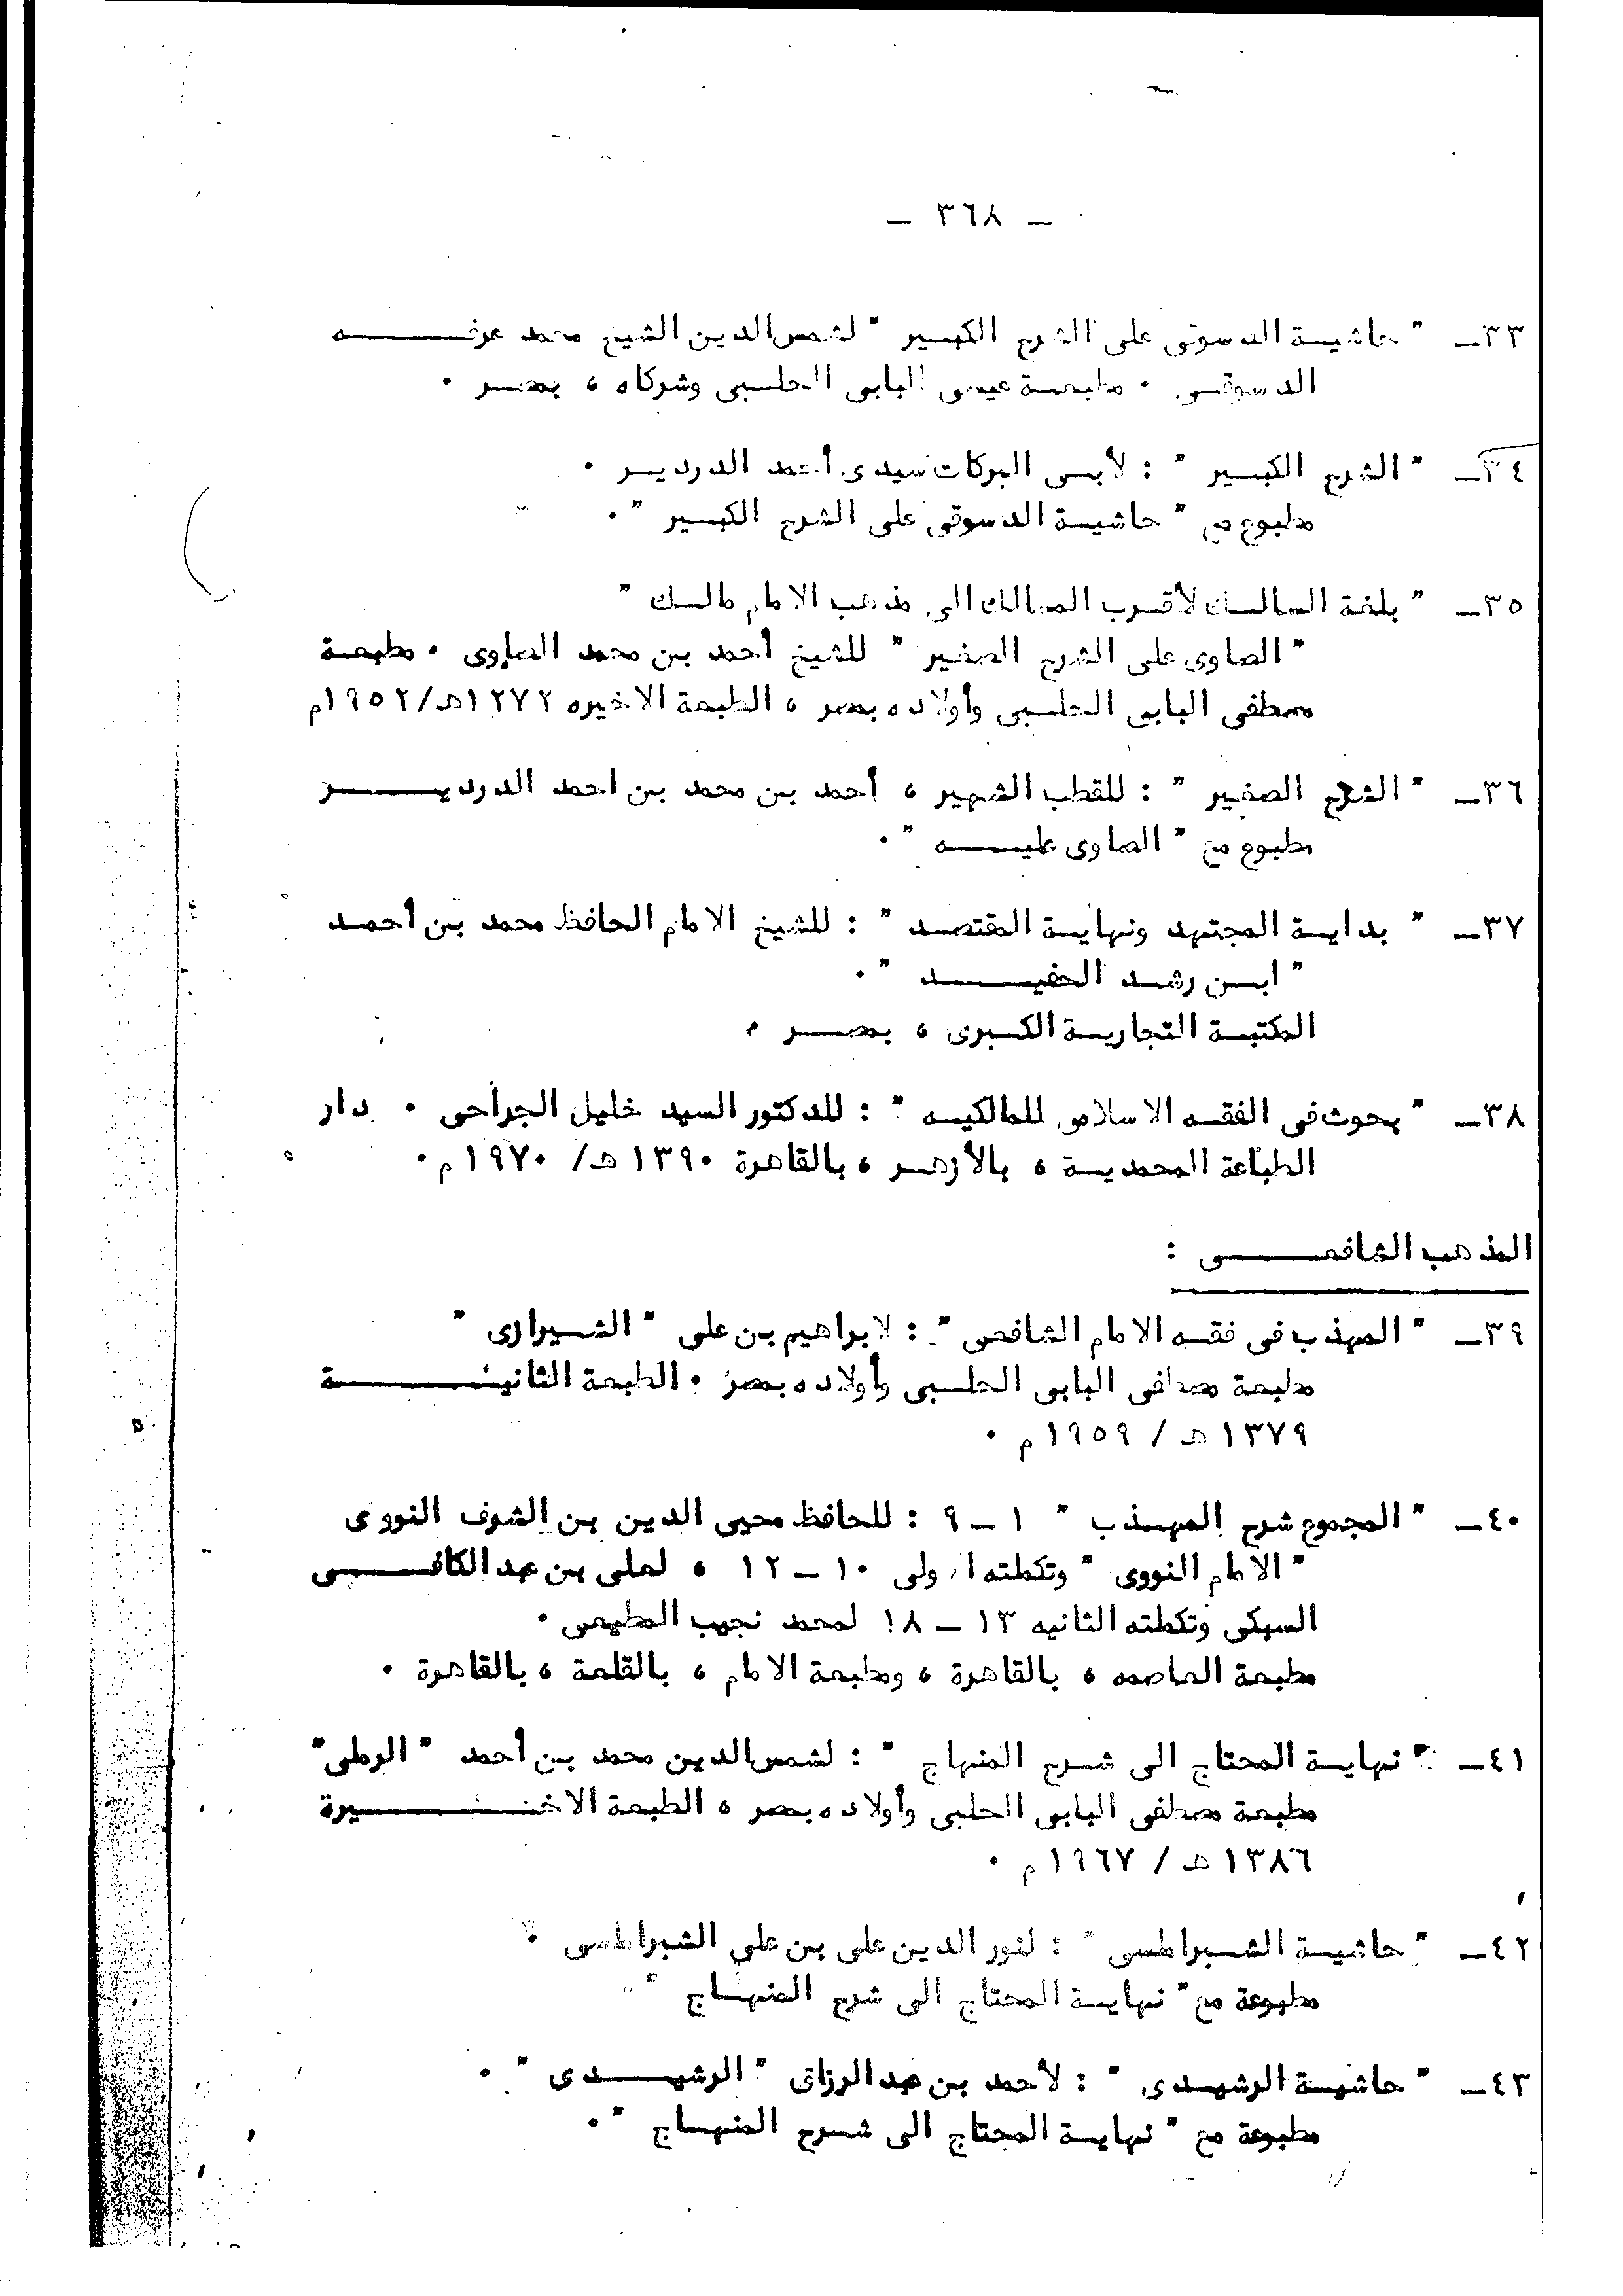 - ٣٦٨ -
٣٣- " حاشية الدسوقى على الشرح الكبير " لشمس الدين الشيخ محمد عرفه
الدسوقى . مطبعة عيسى البابى الحلبى وشركاه ، بمصر .
٣٤- " الشرح الكبير " : لأبى البركات سيدى أحمد الدردير .
مطبوع مع " حاشية الدسوقى على الشرح الكبير " .
٣٥- " بلغة السالك لأقرب المسالك الى مذهب الامام مالك "
" الصاوى على الشرح الصغير " للشيخ أحمد بن محمد الصاوى . مطبعة
مصطفى البابى الحلبى وأولاده بمصر ، الطبعة الاخيره ١٢٧٢هـ/١٩٥٢م
٣٦- " الشرح الصغير " : للقطب الشهير ، أحمد بن محمد بن احمد الدردير
مطبوع مع " الصاوى عليه " .
٣٧- " بداية المجتهد ونهاية المقتصد " : للشيخ الامام الحافظ محمد بن أحمد
" ابن رشد الحفيد " .
المكتبة التجارية الكبرى ، بمصر .
٣٨- " بحوث فى الفقه الاسلامى للمالكيه " : للدكتور السيد خليل الجراحى . دار
الطباعة المحمدية ، بالأزهر ، بالقاهرة ١٣٩٠ هـ/ ١٩٧٠ م .
المذهب الشافعى :
٣٩- " المهذب فى فقه الامام الشافعى " : لابراهيم بن على " الشيرازى "
مطبعة مصطفى البابى الحلبى وأولاده بمصر . الطبعة الثانية
١٣٧٩ هـ / ١٩٥٩ م .
٤٠- " المجموع شرح المهذب " ١ - ٩ : للحافظ محيى الدين بن الشرف النووى
" الامام النووى " وتكملته اولى ١٠ - ١٢ ، لعلى بن عبد الكافى
السبكى وتكملته الثانيه ١٣ - ١٨ لمحمد نجيب المطيعى .
مطبعة العاصمه ، بالقاهرة ، ومطبعة الامام ، بالقلعة ، بالقاهرة .
٤١- " نهاية المحتاج الى شرح المنهاج " : لشمس الدين محمد بن أحمد " الرملى "
مطبعة مصطفى البابى الحلبى وأولاده بمصر ، الطبعة الاخيرة
١٣٨٦ هـ / ١٩٦٧ م .
٤٢- " حاشية الشبراطسى " : لنور الدين على بن على الشبراطسى .
مطبوعة مع " نهاية المحتاج الى شرح المنهاج "
٤٣- " حاشية الرشيدى " : لأحمد بن عبد الرزاق " الرشيدى " .
مطبوعة مع " نهاية المحتاج الى شرح المنهاج " .